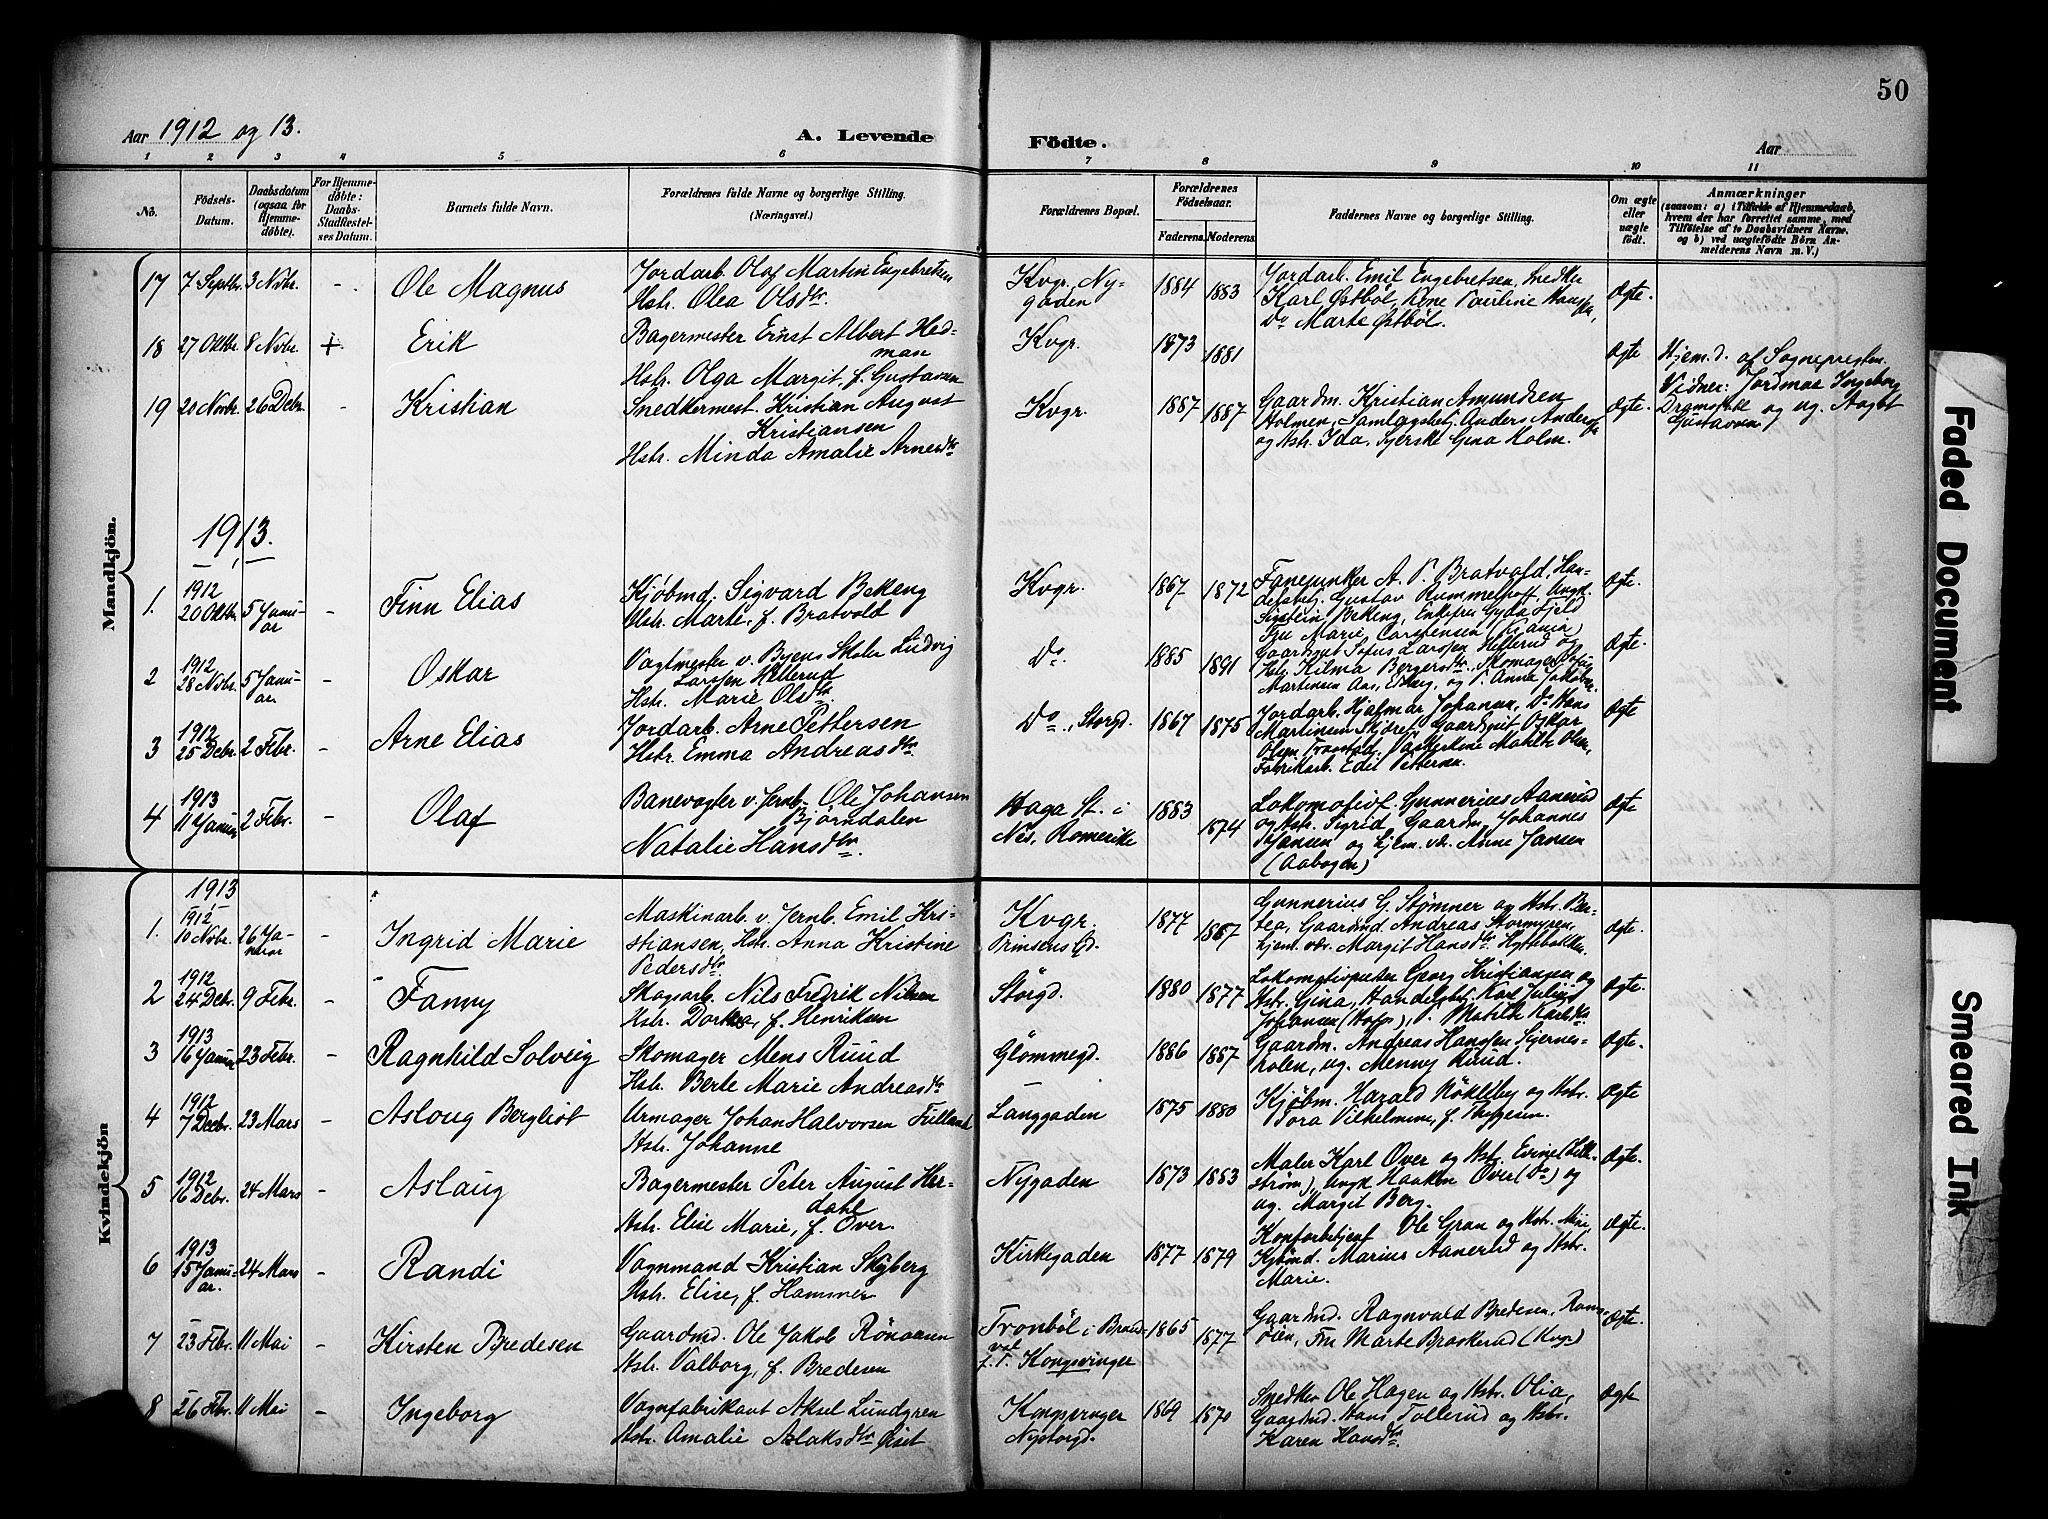 50
Aar 1912 og 13.
A. Levende Födte.
Aar
1 2 3 4 5 6 7 8 9 10 11
No.
Födsels-Datum.
Daabsdatum (ogsaa for Hjemme-döbte).
For Hjemme-döbte: Daabs-Stadfæstel-ses Datum.
Barnets fulde Navn.
Forældrenes fulde Navne og borgerlige Stilling. (Næringsvei.)
Forældrenes Bopæl.
Forældrenes Födselsaar.
Faderens. Moderens.
Faddernes Navne og borgerlige Stilling.
Om ægte eller uægte födt.
Anmærkninger
(saasom: a) i Tilfælde af Hjemmedaab, hvem der har forrettet samme, med Tilföielse af to Daabsvidners Navne, og b) ved uægtefödte Börn An-melderens Navn m. V.)
Mandkjön.
17 7 Septbr. 3 Novbr. - Ole Magnus
Jordarb. Olaf Martin Engebretsen
Hstr. Olea Olsdtr
Kvgr., Ny-
gaden
1884 1883
Jordarb. Emil Engebretsen, Snedker
Karl Østbøl, Kone Pauline
Do Marte Østbøl.
Ægte.
18 27 Oktbr. 8 Novbr. +. Erik
Bagermester Ernst Albert Hed-
man
Hstr. Olga Margit, f. Gustavsen
Kvgr.
1873 1881
Ægte
Hjem.d. af Sognepresten.
Vidner: Jordmor Ingeborg
og ug. Aagot
Gustavsen
19 20 Novbr. 26 Debr. - Kristian
Snedkermest. Kristian August
Kristiansen
Hstr. Minda Amalie Arnesdtr
Kvgr.
1887 1887
Gaardm. Kristian Amundsen
Holmen, Samlagsbetj. Anders
og Hstr. Ida, Syerske Gina Holm.
Ægte.
1913.
1. 1912 20 Oktbr. 5 Janu-ar - Finn Elias
Kjøbmd. Sigvard Bekeng
Hstr. Marte, f. Bratvold
Kvgr.
1867 1872
Fanejunker A. P. Bratvold, Han-
delsbetj. Gustav Rummelhoff, Ungk.
Sigstein Bekeng, Enkefru Gyda Fjeld
Fru Marie Carstensen
Ægte.
2 1912 28 Novbr. 5 Janu-ar - Oskar
Vagtmester v. Byens Skoler Ludvig
Larssen Hellerud
Hstr. Marie Olsdtr
Do.
1885 1891
Gaardgut Sofus Larssen Hellerud og
Hstr. Hilma Bergersdtr, Skomager
Martinsen Aas, og P. Anna
Ægte.
3 1912 25 Debr. 2 Febr. - Arne Elias
Jordarb. Arne Pettersen
Hstr. Emma Andreasdtr
Do., Storgd.
1867 1875
Jordarb. Hjalmar Johansen, Do Hans
Martinsen Gaardgut Oskar
Olsen Mathilde Olsen,
Fabrikarb. Edil Pettersen.
Ægte
4 1913 11 Januar 2 Febr. - Olaf
Banevogter v. Jernb. Ole Johansen
Bjørndalen
Natalie Hansdtr.
Haga St. i
Nes, Romerike
1883 1874
Lokomotivf. Gunnerius Aanerud
og Hstr. Sigrid, Gaardm. Johannes
Jansen og hjem.vr. Anne Jansen
(Aabogen)
Ægte
Kvindekjön
1913
1. 1912 10 Novbr. 26 Ja-nuar - Ingrid Marie
Maskinarb. v. Jernb. Emil Kri-
stiansen, Hstr. Anna Kristine
Pedersdtr
Kvgr.
Prinsensgd.
1877 1887
Gunnerius G. Stømner og Hstr. Ber-
tea, Gaardmd. Andreas Stormyren,
hjem.vr. Margit Hansdtr.
Ægte.
2 1912 24 Debr. 9 Febr. - Fanny
Skogsarb. Nils Fredrik Nilsen
Hstr. Dorthea, f. Henriksen
Storgd.
1880 1877
Lokomotivpudser Georg Kristiansen og
Hstr. Gina, Handelsbetj. Karl Julius
Johansen P. Mathilde
Ægte.
3 1913 16 Januar 23 Febr. - Ragnhild Solveig
Skomager Mens Ruud
Hstr. Berte Marie Andreasdtr
Glommegd.
1886 1887
Gaardm. Andreas Hanssen Hjernes-
holen, ug. Menny Ruud.
Ægte.
4 1912 7 Decbr. 23 Mars - Aslaug Bergliot
Urmager Johan Halvorsen Frilland
Hstr. Johanne
Langgaden
1875 1880
Kjøbm. Harald Nökleby og Hstr.
Tora Vilhelmine, f.
Ægte
5 1912 16 Debr. 24 Mars - Aslaug
Bagermester Peter August Her-
dahl
Hstr. Elise Marie, f. Over.
Nygaden
1873 1883
Maler Karl Over og Hstr.
strøm), Ungk. Haakon Over (Do) og
ug. Margit Berg.
Ægte.
6 1913 15 Janu-ar. 24 Mars - Randi
Vognmand Kristian Skyberg
Hstr. Elise, f. Hammer
Kirkegaden
1877 1879
Kontorbetjent Ole Gran og Hstr. Mimi,
Kjømd. Marius Aanerud og Hstr.
Marie.
Ægte.
7 23 Febr. 11 Mai - Kirsten Bredesen
Gaardmd. Ole Jakob Rönaasen
Hstr. Valborg, f. Bredesen
Tronböl i Brand-
val
f. T. Kongsvinger
1865 1877
Gaardmd. Ragnvald Bredesen,
Fru Marte Braskerud (Kvgr)
Ægte.
8 26 Febr. 11 Mai - Ingeborg
Vognfabrikant Aksel Lundgren
Hstr. Amalie Aslaksdtr Øiset
Kongsvinger
Nystorgd.
1869 1870
Snedker Ole Hagen og Hstr. Olia,
Gaardmd. Hans Tollerud og Hstr.
Karen Hansdtr.
Ægte
Faded Document
Smeared Ink